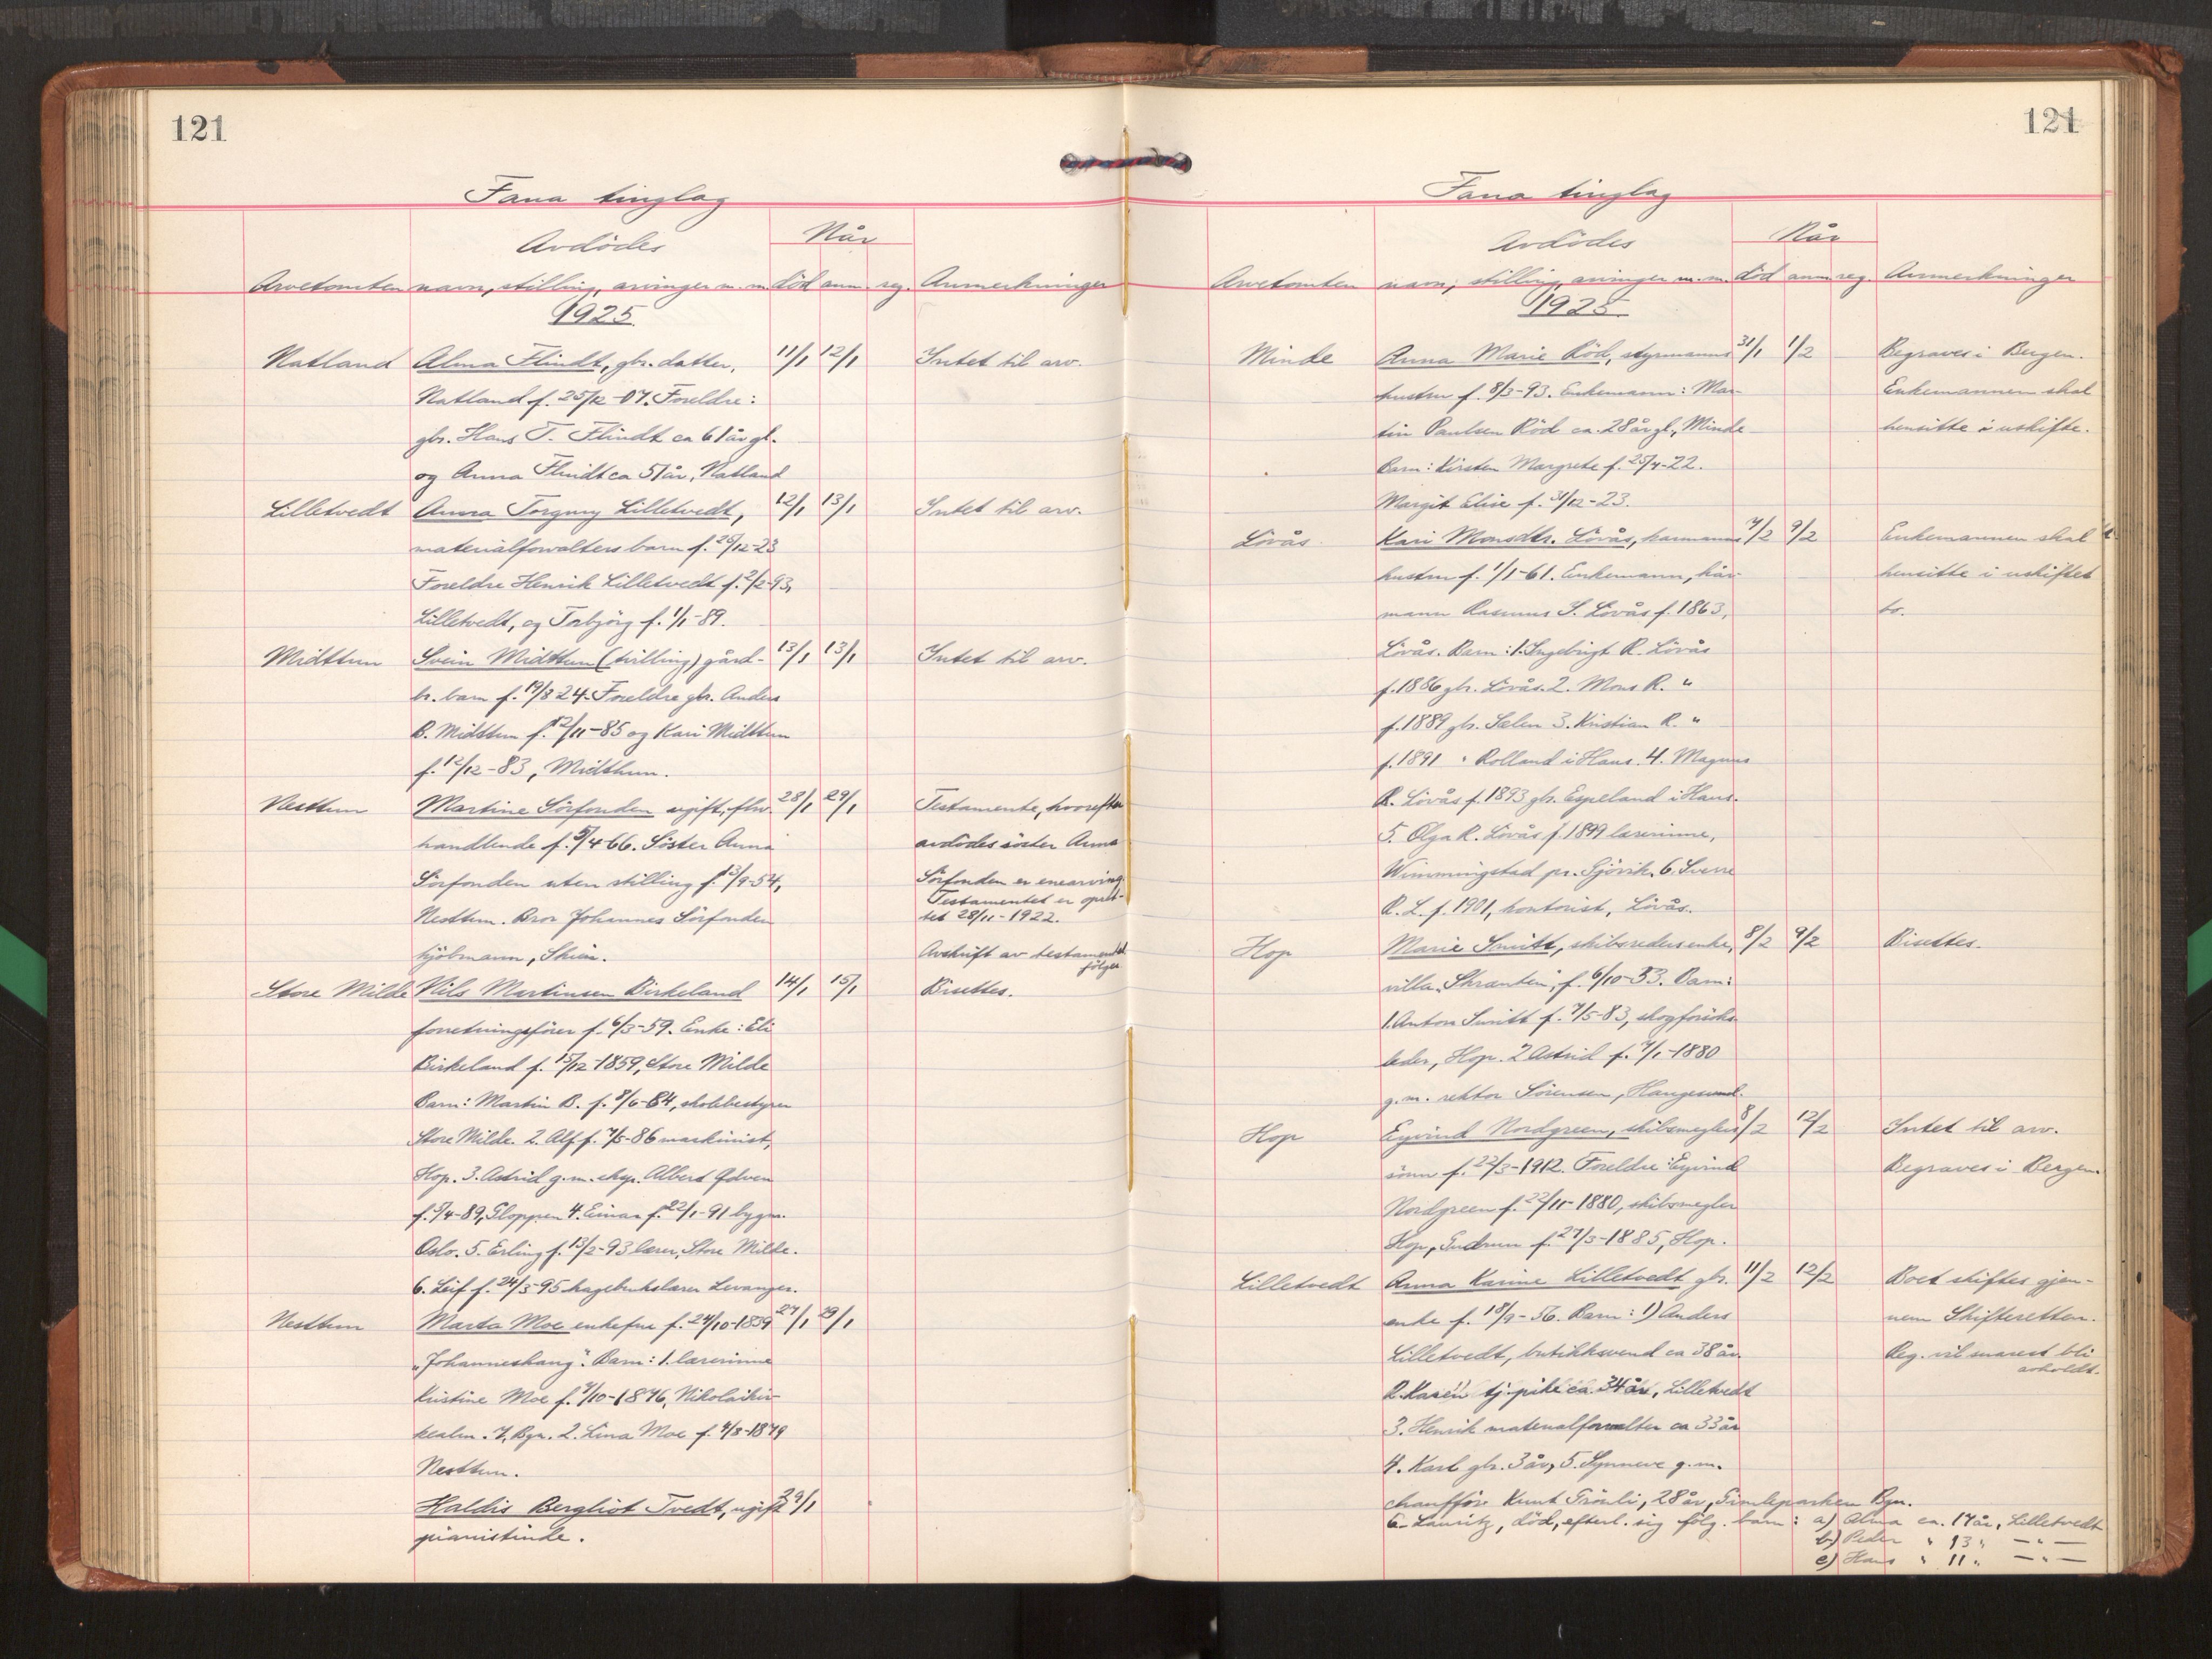 121
Fana tinglag
Avdødes
Når
Arvetomten navn, stilling, arvinger m. m. död anm. reg. Anmerkninger
1925
Natland Alma Flindt, gbr. datter, 11/1 12/1 Intet til arv.
Natland f. 25/12-07. Foreldre:
gbr. Hans T. Flindt ca 61 år gl.
og Anna Flindt ca 51 år, Natland
Lilletvedt Anna Torguny Lilletvedt, 12/1 13/1 Intet til arv.
materialforvalters barn f. 26/12-23
Foreldre Henrik Lilletvedt f. 2/2-93,
Lilletvedt, og Torbjörg f. 1/1-89.
Midttun Svein Midttun (tvilling) gård- 13/1 13/1 Intet til arv.
br. barn f. 19/8 24. Foreldre gbr. Anders
B. Midttun f. 12/11-85 og Kari Midttun
f. 12/12-83, Midthun.
Nesttun Martine Sörfonden ugift, fhv. 28/1 29/1 Testamente, hvorefter
handlende f. 5/4 66. Söster Anna avdödes söster Anna
Sörfonden uten stilling f. 13/9-54, Sörfonden er enearving.
Testamentet er opret-
Nesttun. Bror Johannes Sörfonden tet 28/11-1922.
kjöbmann, Skien. Avskrift av testamentet
följer
Store Milde Nils Martinsen Birkeland 14/1 15/1 Bisettes.
forretningsförer f. 6/3-59. Enke: Eli
Birkeland f. 15/12-1859, Store Milde
Barn: Martin B. f. 8/6-84, skolebestyrer
Store Milde. 2. Alf f. 7/5-86 maskinist,
Hop. 3. Astrid g.m. eksp. Albert
f. 5/4-89, Gloppen 4. Einar f. 22/1-91 bygm.
Oslo. 5. Erling f. 13/2-93 lærer, Store Milde.
6. Leif f. 24/3-95 hagebrukslærer Levanger.
Nesttun Marta Moe enkefru f. 24/10-1839 27/1 29/1
"Johanneshaug". Barn: 1. lærerinne
Kristine Moe f. 7/10-1876, Nikolaikir-
kealm. 7, Bgn. 2. Lina Moe f. 4/8-1879
Nesttun.
Haldis Bergliot Tvedt, ugift 29/1
pianistinde.
121
Fana tinglag
Avdödes
Når
Arvetomten navn, stilling, arvinger m. m. död anm. reg. Anmerkninger
1925
Minde Anna Marie Röd, styrmanns 31/1 1/2 Begraves i Bergen.
hustru f. 8/3-93. Enkemann: Mar- Enkemannen skal
tin Paulsen Röd ca. 28 år gl., Minde hensitte i uskifte.
Barn: Kirsten Margrete f. 25/4-22.
Margit Elise f. 31/12-23.
Lövås. Kari Monsdtr. Lövås, kårmanns 7/2 9/2 Enkemannen skal
hustru f. 1/1-61. Enkemann, kår- hensitte i uskiftet
mann Rasmus S. Lövås f. 1863, bo.
Lövås. Barn: 1. Ingebrigt R. Lövås
f. 1886 gbr. Lövås. 2. Mons R. "
f. 1889 gbr. Sælen 3. Kristian R. "
f. 1891 " Rolland i Haus. 4. Magnus
R. Lövås f. 1893 gbr. Espeland i Haus.
5. Olga R. Lövås f. 1899 lærerinne,
Wimmingstad pr. Gjövik. 6. Sverre
R. L. f. 1901, kontorist, Lövås.
Hop Marie Smitt, skibsreders enke, 8/2 9/2 Bisettes.
villa "Skranten", f. 6/10-53. Barn:
1. Anton Smitt f. 7/5-83, skogforsöks-
leder, Hop. 2 Astrid f. 7/1-1880
g. m. rektor Sörensen, Haugesund.
Hop Eyvind Nordgreen, skibsmeglers 8/2 12/2 Intet til arv.
sönn f. 22/3-1912. Foreldre: Eyvind Begraves i Bergen.
Nordgreen f. 22/11-1880, skibsmegler
Hop, Gudrun f. 27/3-1885, Hop.
Lilletvedt Anna Karine Lilletvedt gbr. 11/2 12/2 Boet skiftes gjen-
enke f. 18/9-56. Barn: 1) Anders nem Skifteretten.
Lilletvedt, butikksvend ca 38 år. Reg. vil snarest bli
avholdt.
2. Karen tj. pike ca. 34 år, Lilletvedt
3. Henrik materialforvalter ca 33 år
4. Karl gbr. 3 år, 5. Synneve g. m.
chaufför Knut Trönli, 28 år, Simleparken Bgn.
6. Lauritz, död, efterl. sig fölg. barn: a) Alma ca. 17 år, Lilletvedt
b) Peder " 13 " — " —
c) Hans " 11 " — " —